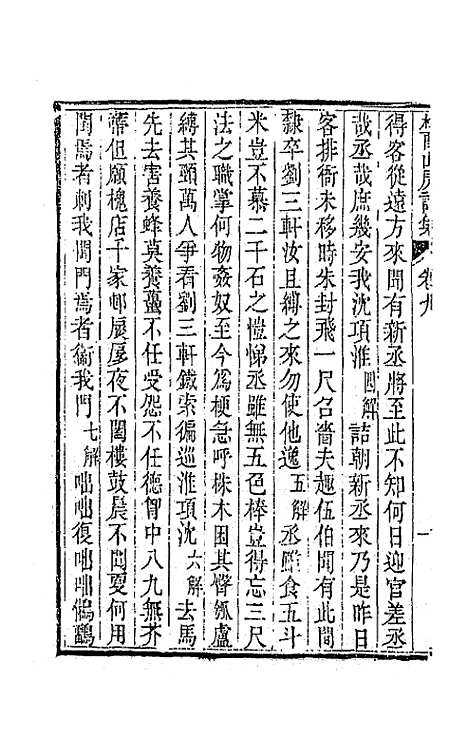 得客從遠方來聞有新丞將至此不知何日迎官差丞
哉丞哉庶幾安我沈項淮四解詰朝新丞來乃是昨日
客排衙未移時朱封飛一尺召嗇夫趣伍伯聞有此間
隸卒劉三軒汝且縛之來勿使他逸五解丞雖食五斗
米豈不慕二千石之愷悌丞雖無五色棒豈得忘三尺
法之職掌何物姦奴至今爲梗急呼株木困其臀瓠盧
縛其頸萬人爭看劉三軒鐵索徧巡淮項沈六解去馬
先去害養蜂莫養蠆不任受怨不任德胷中八九無芥
蔕但願槐店千家邨屋屋夜不閤樓鼓晨不閧耍何用
閏焉者刺我閨門焉者衛我門七解咄咄復咄咄鵂鶹
卷九